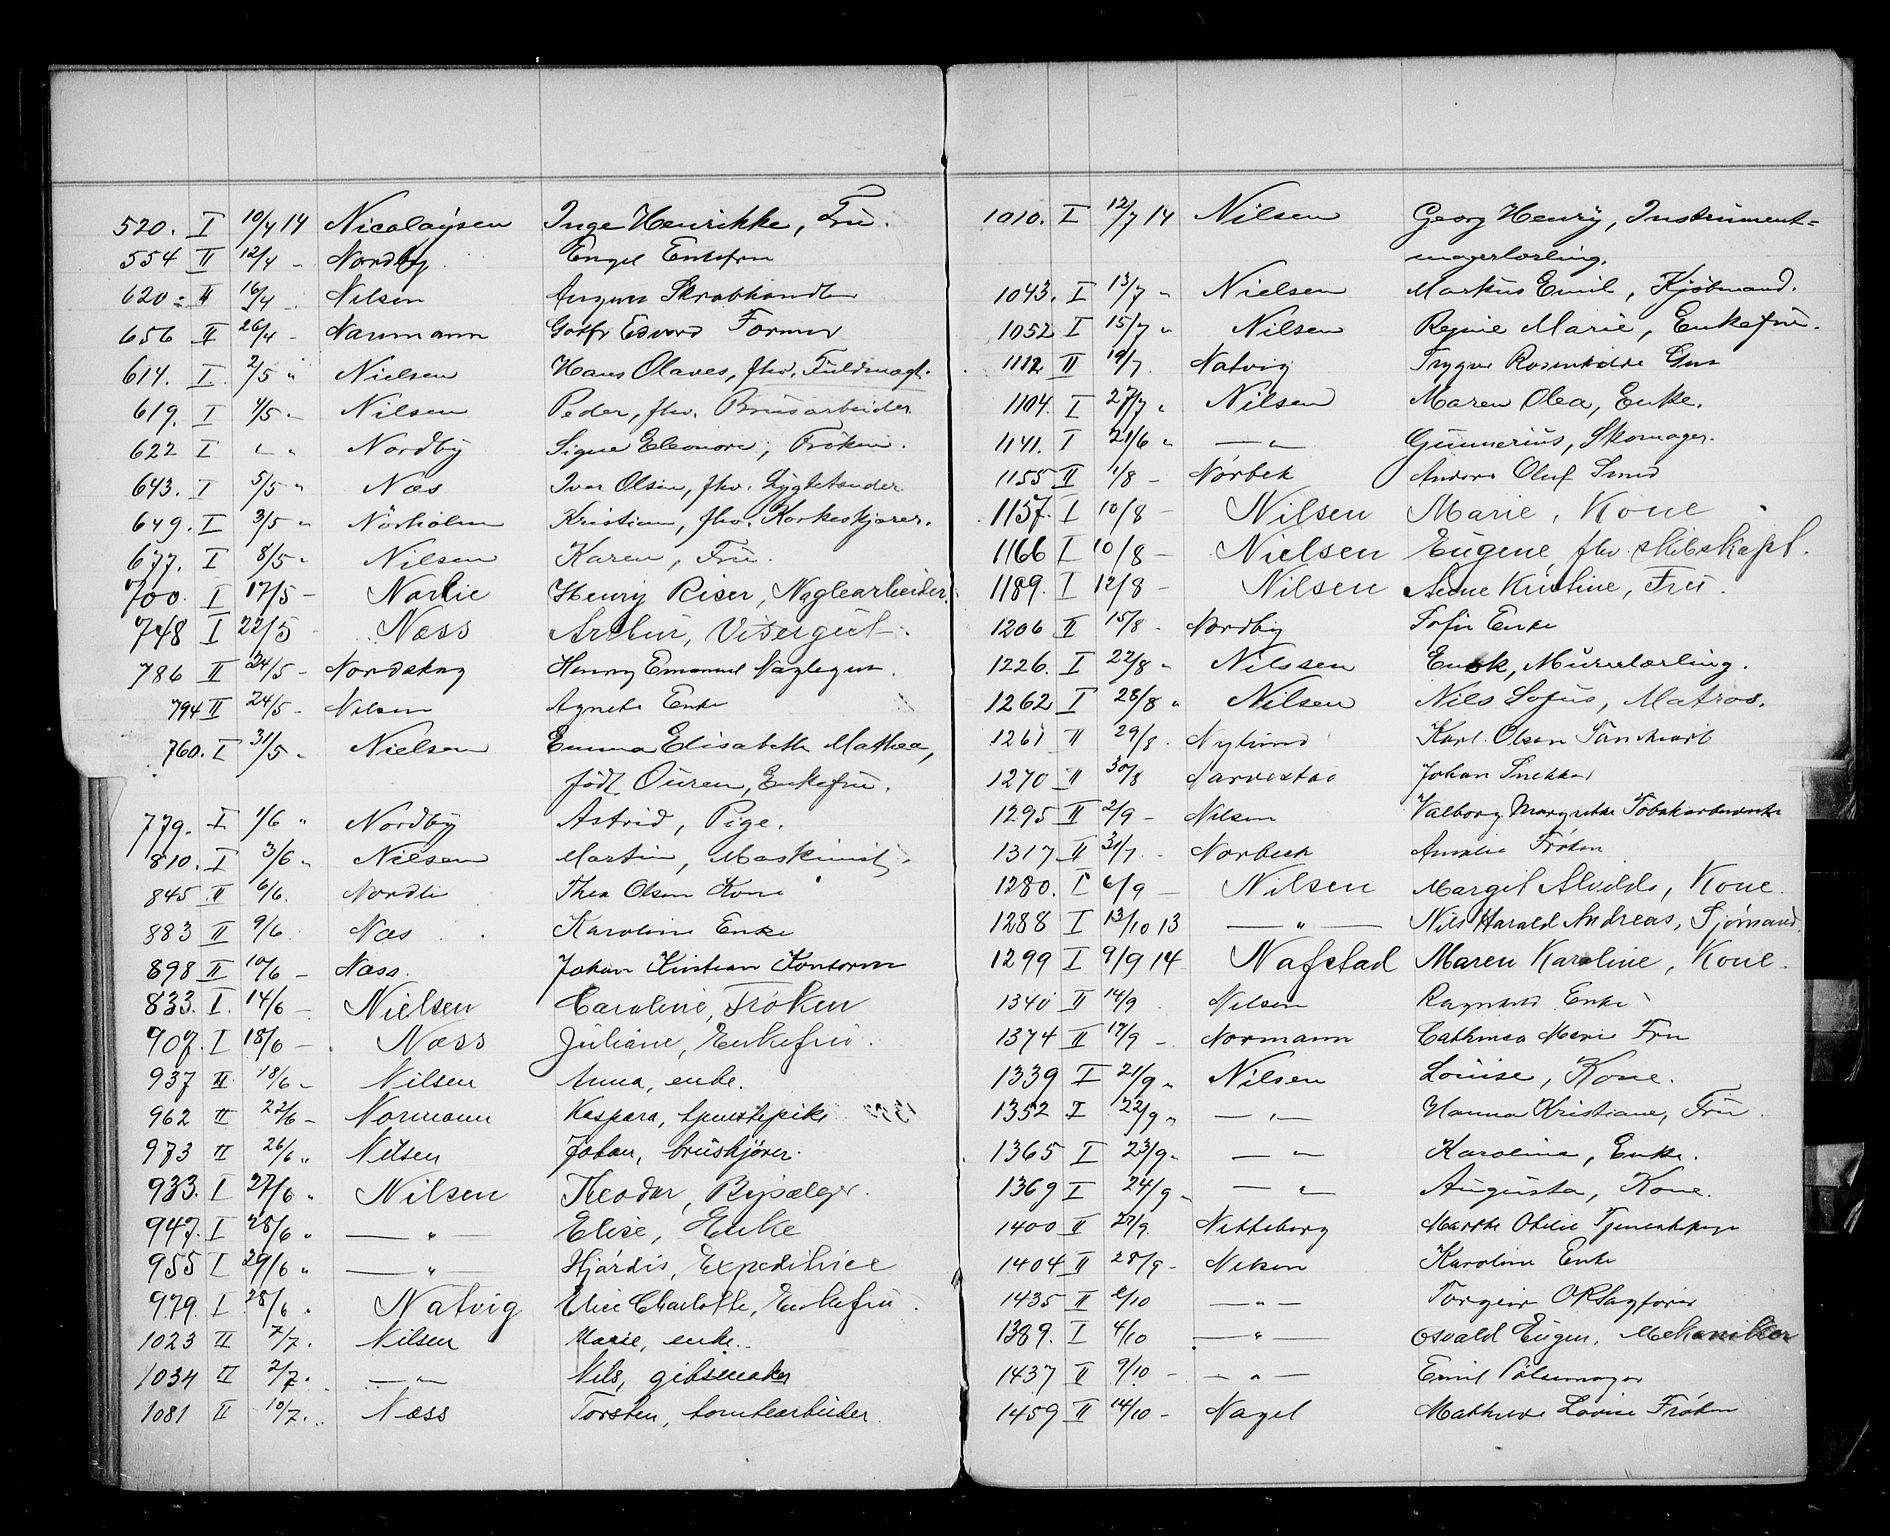 520. I 10/4 14 Nicolaysen Inga Henrikke, Fru.
554 II 12/4 - Nordby Engel Enkefru
620 - II 16/4 - Nilsen Skrabhandler
656 II 26/4 - Naumann Gotfr Edvard Former
614. I 2/5 " Nielsen Hans Olaves, fhv. Fuldmægt.
619. I 4/5 - Nilsen Peder, fhv. Brusarbeider
622 I " " Nordby Signe Eleonore, Frøken.
643. I 5/5 " Næs Iver Olsen, fhv. Lygtetænder
649. I 3/5 " Nörholm Kristian, fhv. Korkeskjærer.
677. I 8/5 " Nilsen Karen, Fru.
700. I 17/5 - Norlie Henry Riser, Naglearbeider.
748 I 22/5 - Næss Arthur, Visergut.
786 II 24/5 - Nordskog Henry Emanuel Naglegut
794 II 24/5 - Nilsen Agnethe Enke
760. I 31/5 " Nielsen Emma Elisabeth Mathea,
födt Ouren, Enkefru.
779. I 1/6 " Nordby Astrid, Pige.
810. I 3/6 " Nielsen Martin, Maskinist.
845 II 6/6. Nordli Thea Olsen Kone
883 II 9/6 Næs Karoline Enke
898 II 10/6 - Næss. Johan Kristian Kontorm
833. I. 14/6 - Nielsen Caroline, Frøken
907. I 18/6 - Næss Juliane, Enkefru.
937 II 18/6 - Nilsen Anna, enke.
962 II 22/6 - Normann Kaspara, tjenestepike
973 II 26/6 " Nilsen Johan, bruskjører.
933. I 27/6 " Nilsen Theodor, Bypælger.
947. I 28/6 " — " — Elise, Enke
955 I 29/6 " — " — Hjördis, Expeditrice
979. I 28/6 " Natvig Elise Charlotte, Enkefru.
1023 II 7/7. Nilsen Marie, enke.
1034 II 2/7. — " — Nils, gibsmaker
1081 II 10/7. Næss Torsten, tomtearbeider.
1010. I 12/7 14 Nilsen Georg Henry, Instrument=
magerlærling.
1043. I 13/7 " Nielsen Markus Emil, Kjöbmand.
1052 I 15/7 " Nilsen Regine Marie, Enkefru.
1112 II 19/7. Natvig Trygve Rosenkilde
1104. I 27/7 " Nilsen Maren Olea, Enke.
1141. I 21/6 " — " — Gunnerius, Skomager.
1155 II 1/8 - Nørbek Anders Oluf Smed
1157. I 10/8 - Nilsen Marie, Kone
1166 I 10/8 - Nielsen Eugene, fhv. skibskapt.
1189. I 12/8 - Nilsen Anne Kristine, Fru.
1206 II 15/8 - Nordby Sofie Enke
1226. I 22/8 " Nilssen Murerlærling.
1262 I 28/8 " Nilsen Nils Sofus, Matros.
1261 II 29/8. Nylund Karl Olsen
1270 II 30/8 Narvestad Johan Snekker
1295 II 2/9 - Nilsen Valborg Margrethe Tobakarbeiderske
1317 II 31/7 - Norbeck Amalie Frøken
1280. I 6/9 - Nilsen Margit Alvilde, Kone.
1288 I 13/10 13 — " — Nils Harald Andreas, Sjømand
1299 I 9/9 14 Nafstad Maren Karoline, Kone.
1340 II 14/9 Nilsen Ragnhild Enke
1374 II 17/9 - Normann Cathinca Marie Fru
1339 I 21/9 " Nilsen Louise, Kone.
1352 I 22/9 " — " — Hanna Kristiane, Fru.
1365 I 23/9 " — " — Karoline, Enke.
1369 I 24/9 " — " — Augusta, Kone.
1400 II 27/9. Nitteberg Marthe Otilie Tjenestepige
1404 II 28/9 - Nilsen Karoline Enke
1435 II 2/10 — " — Torgeir ORSagfører
1389. I 4/10 — " — Osvald Eugen. Mekaniker
1437 II 9/10 - — " — Emil Pølsemager
1459 II 14/10 - Nagel Mathilde Lovise Frøken